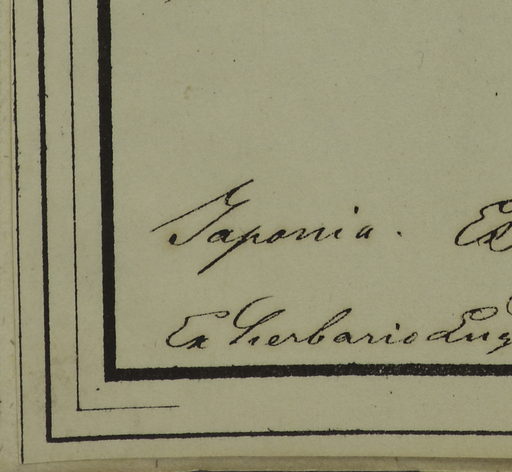 Japonia. Ex
Ex Herbario Lug